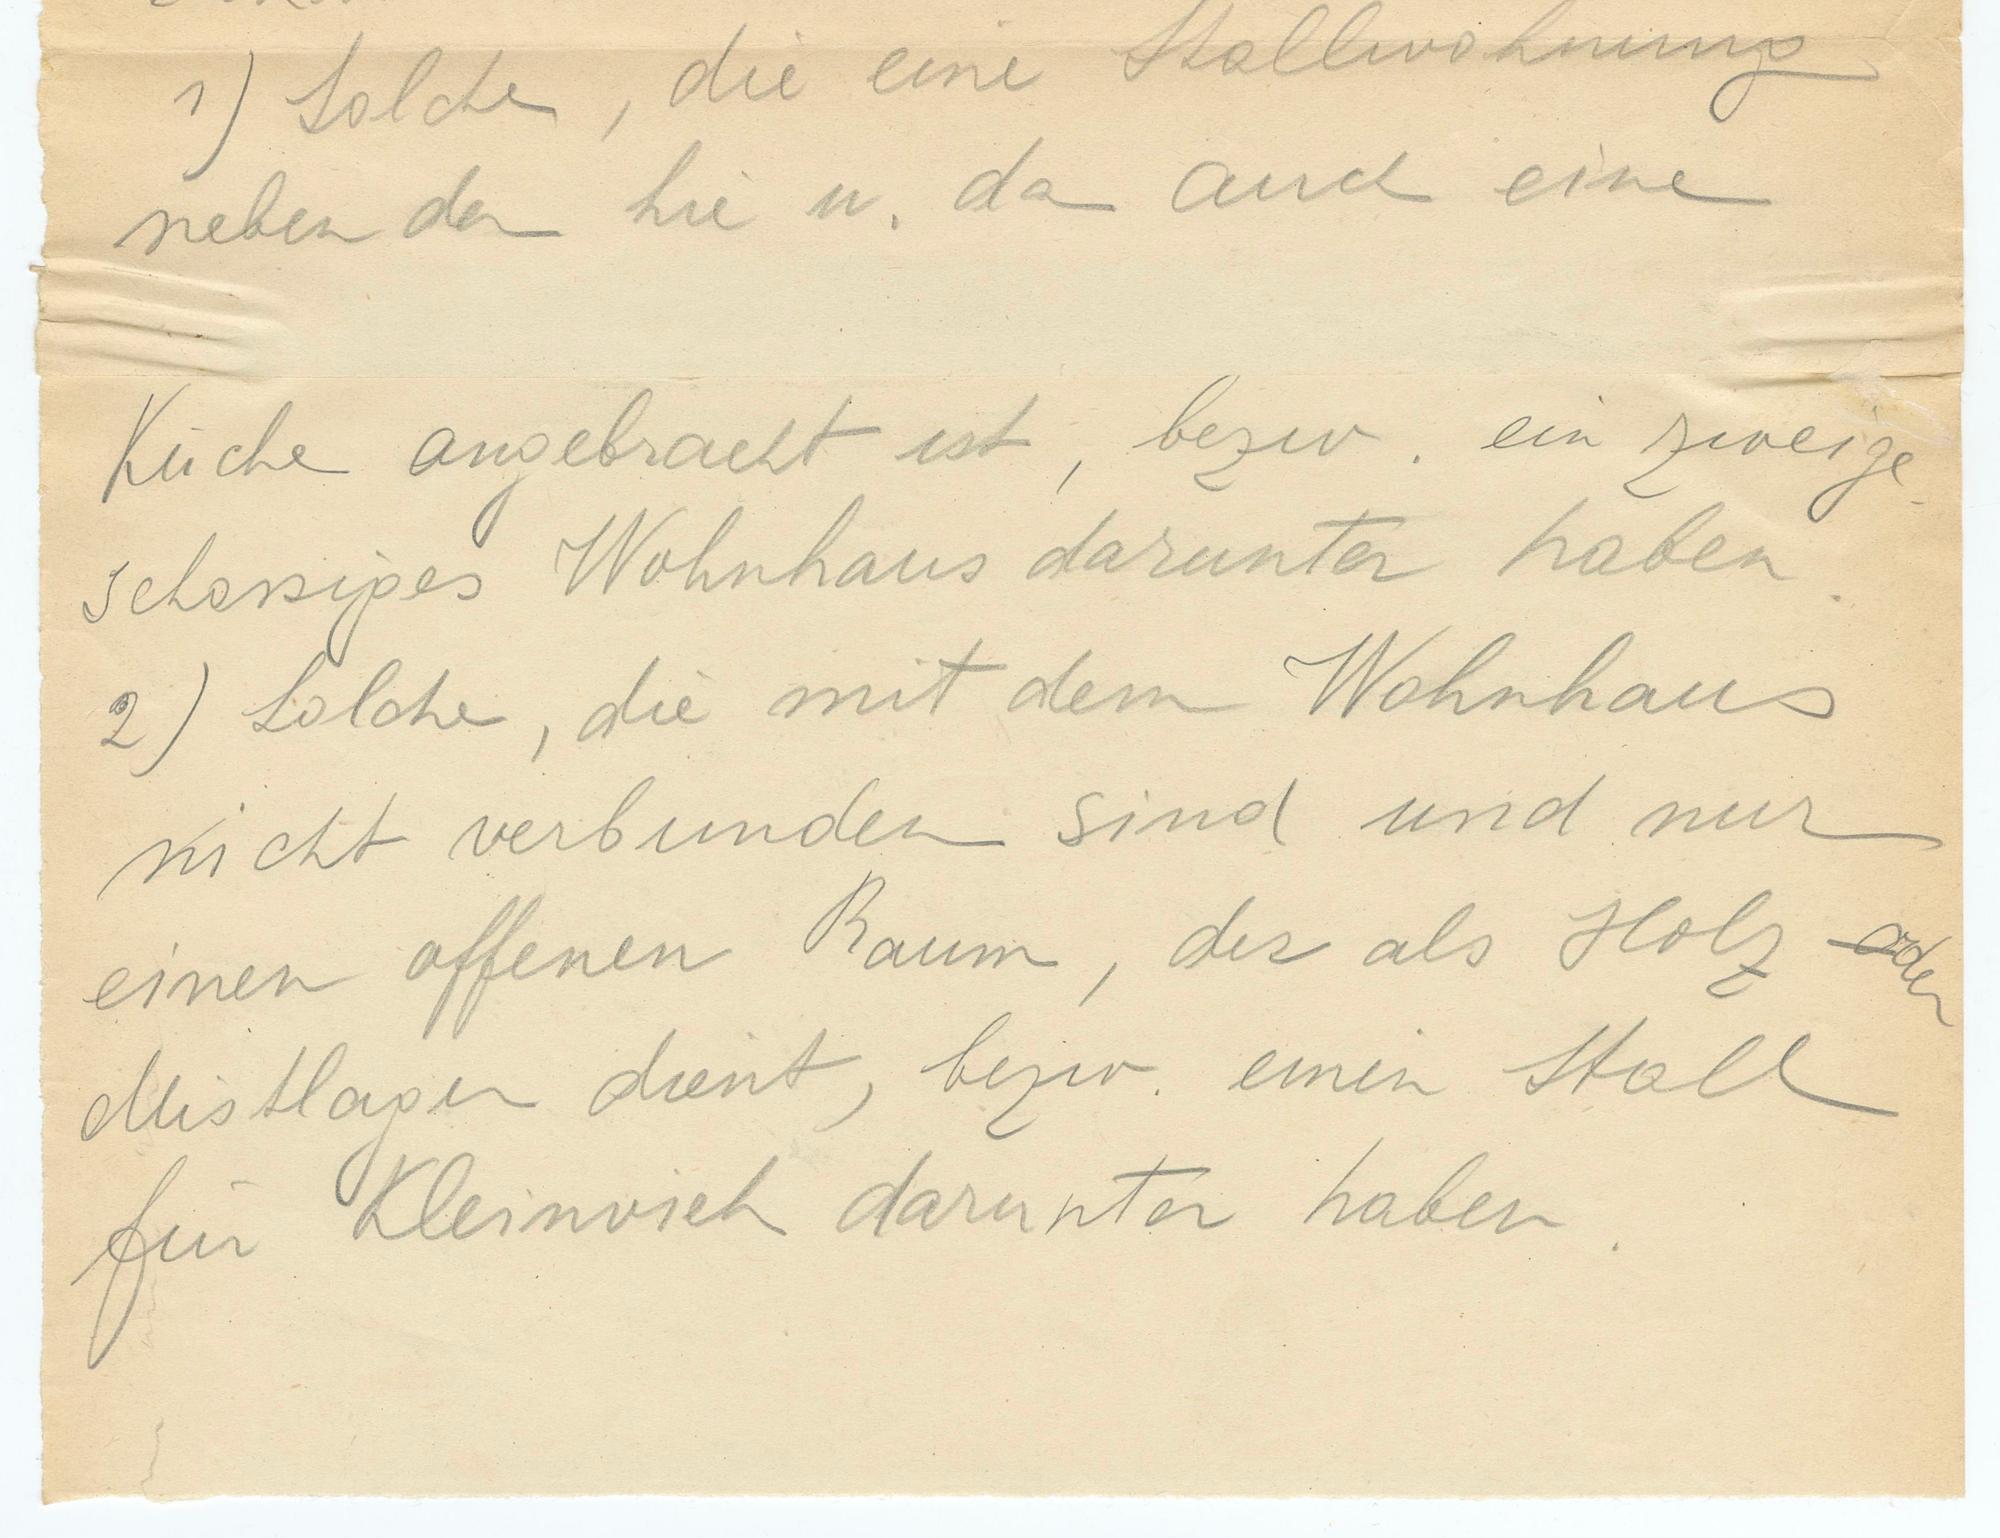 1) Solche, die eine Stallwohnung
neben der hie u. da auch eine
Küche angebracht ist, bezw. ein zweige-
schossiges Wohnhaus darunter haben.
2) Solche, die mit dem Wohnhaus
nicht verbunden sind und nur
einen offenen Raum, der als Holz- oder
Mistlager dient, bezw. einen Stall
für Kleinvieh darunter haben.